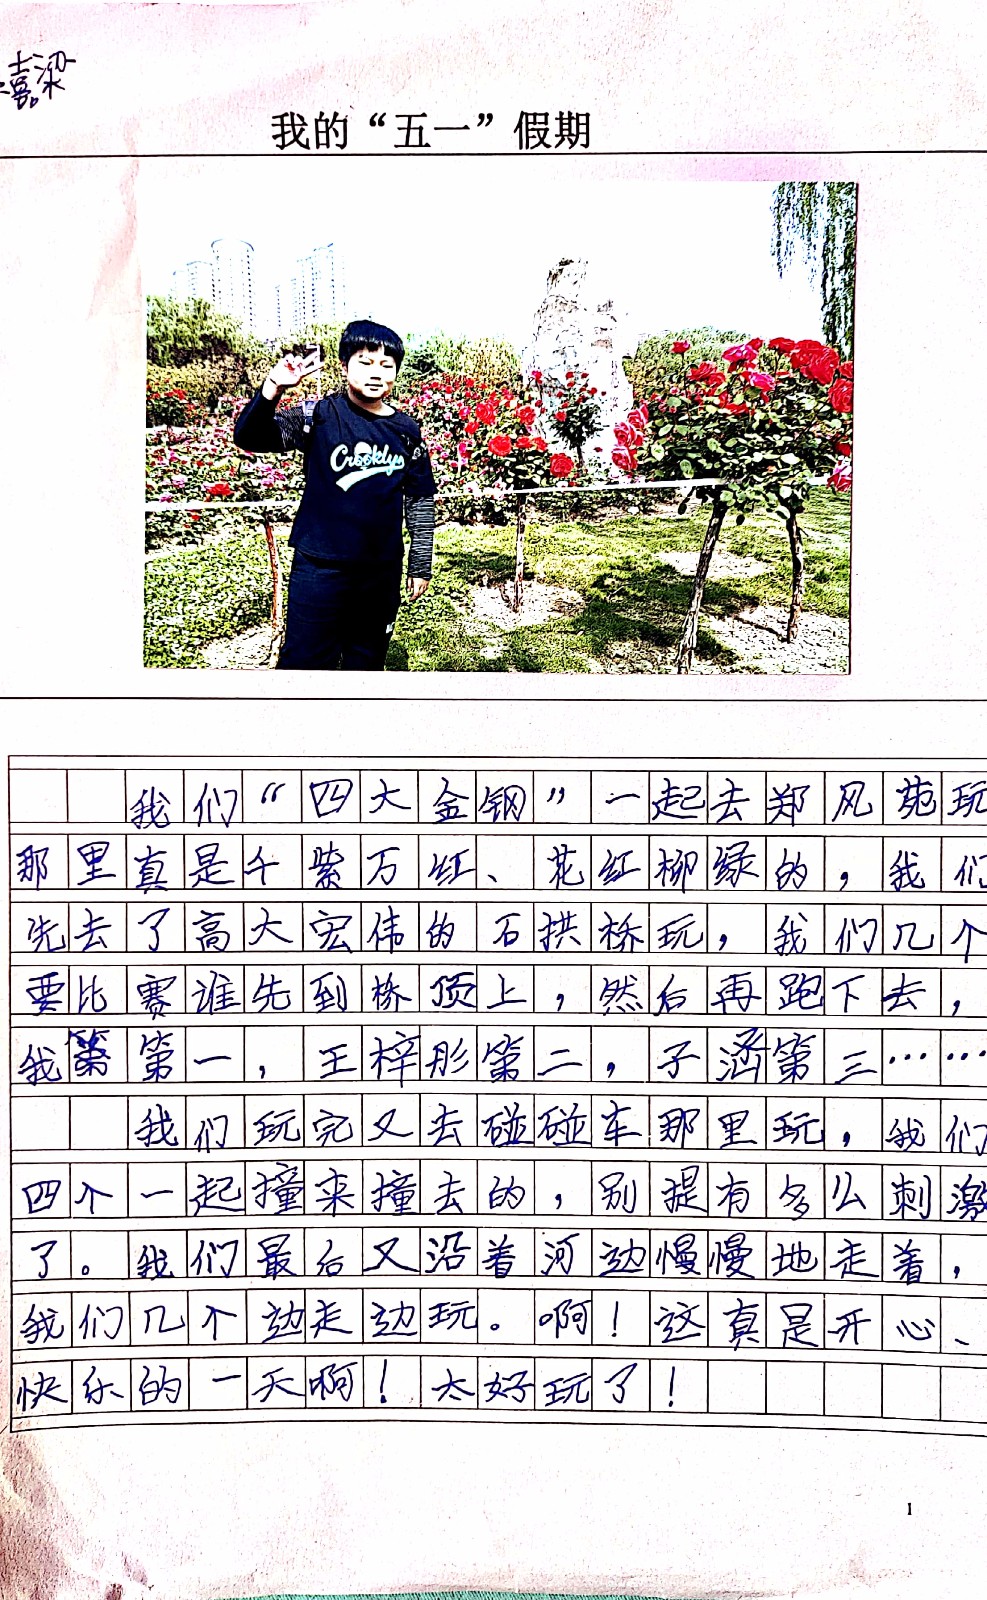 喜梁
我的“五一”假期
Crooklyn
我们“四大金钢”一起去郑风苑玩
那里真是千紫万红、花红柳绿的，我们
先去了高大宏伟的石拱桥玩，我们几个
要比赛谁先到桥顶上，然后再跑下去，
我第第一，王梓彤第二，子涵第三……
我们玩完又去碰碰车那里玩，我们
四个一起撞来撞去的，别提有多么刺激
了。我们最后又沿着河边慢慢地走着，
我们几个边走边玩。啊！这真是开心、
快乐的一天啊！太好玩了！
1